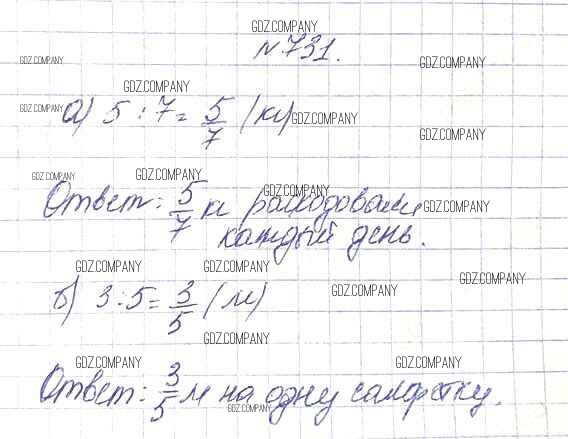 GDZ.COMPANY
№731.
GDZ.COMPANY GDZ.COMPANY
GDZ.COMPANY
GDZ.COMPANY
а) 5 : 7 = 5/7 (кг)
GDZ.COMPANY
GDZ.COMPANY
GDZ.COMPANY GDZ.COMPANY
GDZ.COMPANY
Ответ: 5/7 кг расходовали
GDZ.COMPANY
каждый день.
GDZ.COMPANY GDZ.COMPANY
GDZ.COMPANY
GDZ.COMPANY
б) 3 : 5 = 3/5 (м)
GDZ.COMPANY
GDZ.COMPANY GDZ.COMPANY
Ответ: 3/5 м на одну салфетку.
GDZ.COMPANY